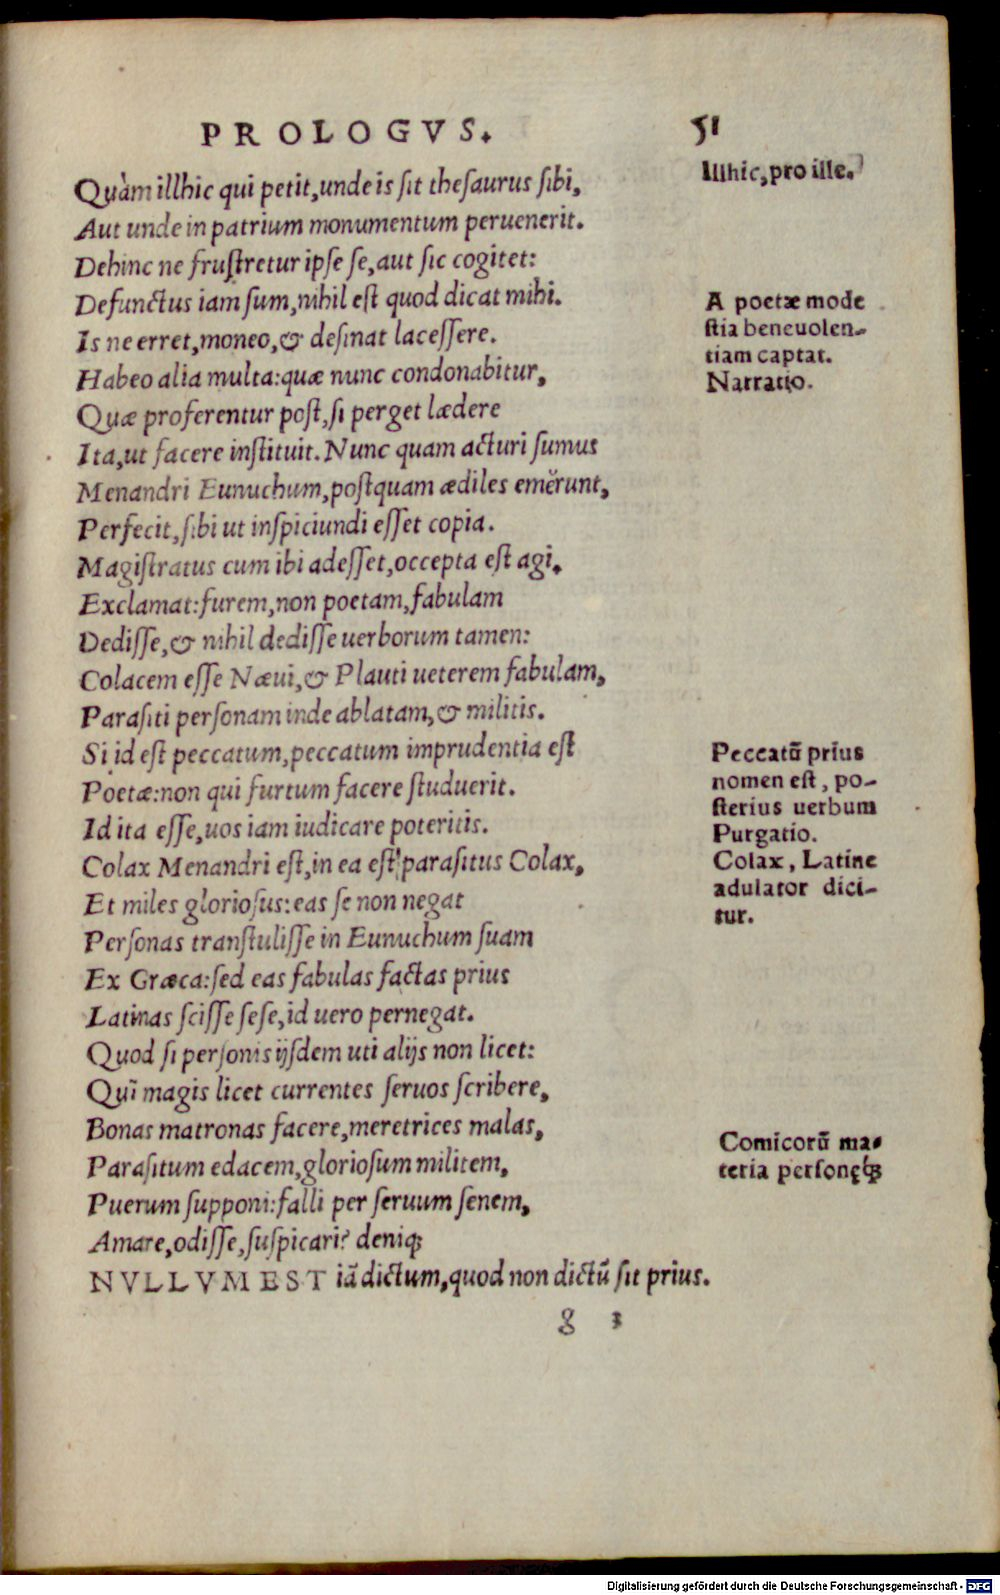 PROLOGVS. 51
Quàm illhic qui petit, unde is sit thesaurus sibi,
Illhic, pro ille.
Aut unde in patrium monumentum peruenerit.
Dehinc ne frustretur ipse se, aut sic cogitet:
Defunctus iam sum, nihil est quod dicat mihi.
Is ne erret, moneo, & desinat lacessere.
Habeo alia multa: quæ nunc condonabitur,
A poetæ mode
stia beneuolen-
tiam captat.
Narratio.
Quæ proferentur post, si perget lædere
Ita, ut facere instituit. Nunc quam acturi sumus
Menandri Eunuchum, postquam ædiles emêrunt,
Perfecit, sibi ut inspiciundi esset copia.
Magistratus cum ibi adesset, occepta est agi.
Exclamat: furem, non poetam, fabulam
Dedisse, & nihil dedisse uerborum tamen:
Colacem esse Næui, & Plauti ueterem fabulam,
Parasiti personam inde ablatam, & militis.
Si id est peccatum, peccatum imprudentia est
Poetæ: non qui furtum facere studuerit.
Id ita esse, uos iam iudicare poteritis.
Peccatū prius
nomen est, po-
sterius uerbum
Purgatio.
Colax Menandri est, in ea est parasitus Colax,
Et miles gloriosus: eas se non negat
Colax, Latine
adulator dici-
tur.
Personas transtulisse in Eunuchum suam
Ex Græca: sed eas fabulas factas prius
Latinas scisse sese, id uero pernegat.
Quod si personis ijsdem uti alijs non licet:
Quî magis licet currentes seruos scribere,
Bonas matronas facere, meretrices malas,
Parasitum edacem, gloriosum militem,
Comicorū ma-
teria personęq́;
Puerum supponi: falli per seruum senem,
Amare, odisse, suspicari? deniq;
NVLLVM EST iā dictum, quod non dictū sit prius.
g 3
Digitalisierung gefördert durch die Deutsche Forschungsgemeinschaft - DFG